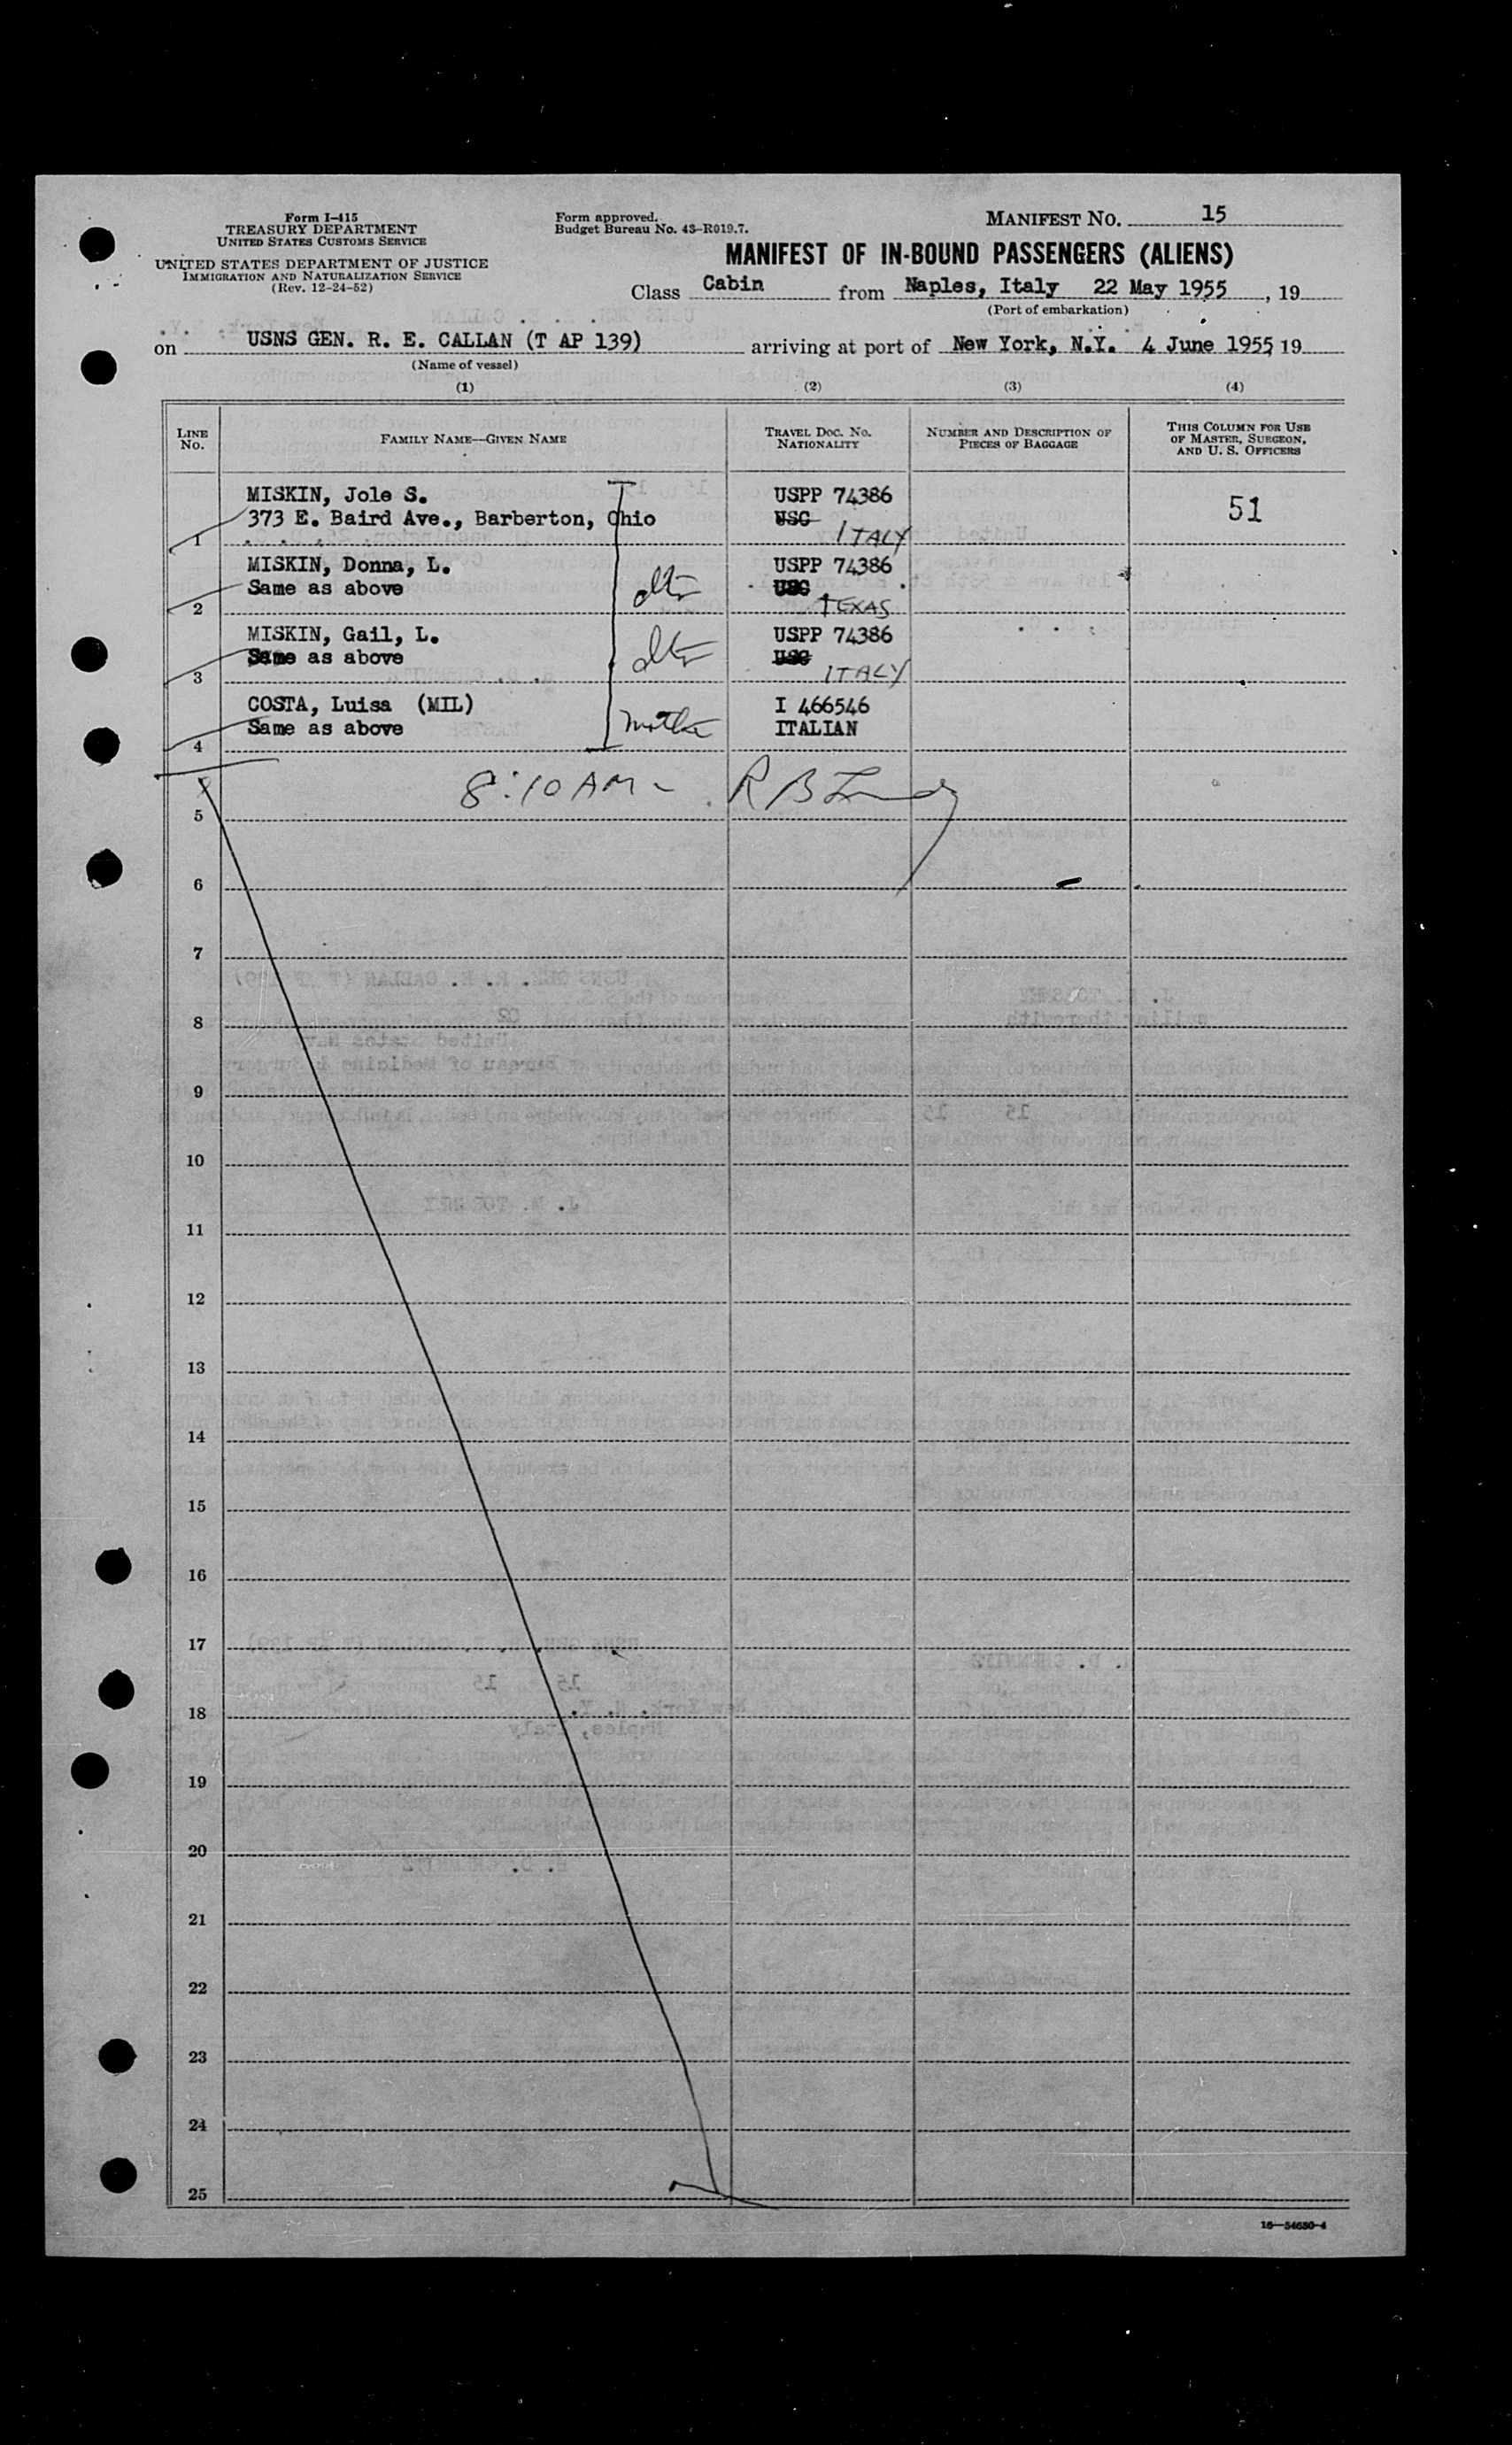 Form I-415
TREASURY DEPARTMENT
UNITED STATES CUSTOMS SERVICE
UNITED STATES DEPARTMENT OF JUSTICE
IMMIGRATION AND NATURALIZATION SERVICE
(Rev. 12-24-52)
Form approved.
Budget Bureau No. 43-R019.7.
MANIFEST NO. 15
MANIFEST OF IN-BOUND PASSENGERS (ALIENS)
Class Cabin from Naples, Italy 22 May 1955, 19
(Port of embarkation)
on USNS GEN. R. E. CALLAN (T AP 139) arriving at port of New York, N.Y. 4 June 1955 19
(Name of vessel)
(1) (2) (3) (4)
LINE NO.
FAMILY NAME—GIVEN NAME
TRAVEL DOC. NO. NATIONALITY
NUMBER AND DESCRIPTION OF PIECES OF BAGGAGE
THIS COLUMN FOR USE OF MASTER, SURGEON, AND U. S. OFFICERS
MISKIN, Jole S. USPP 74386 51
373 E. Baird Ave., Barberton, Ohio USC ITALY
1
MISKIN, Donna, L. USPP 74386
Same as above USC TEXAS
2
MISKIN, Gail, L. USPP 74386
Same as above USC ITALY
3
COSTA, Luisa (MIL) I 466546
Same as above mother ITALIAN
4
8:10 AM - R B
5
6
7
8
9
10
11
12
13
14
15
16
17
18
19
20
21
22
23
24
25
16—54630-4